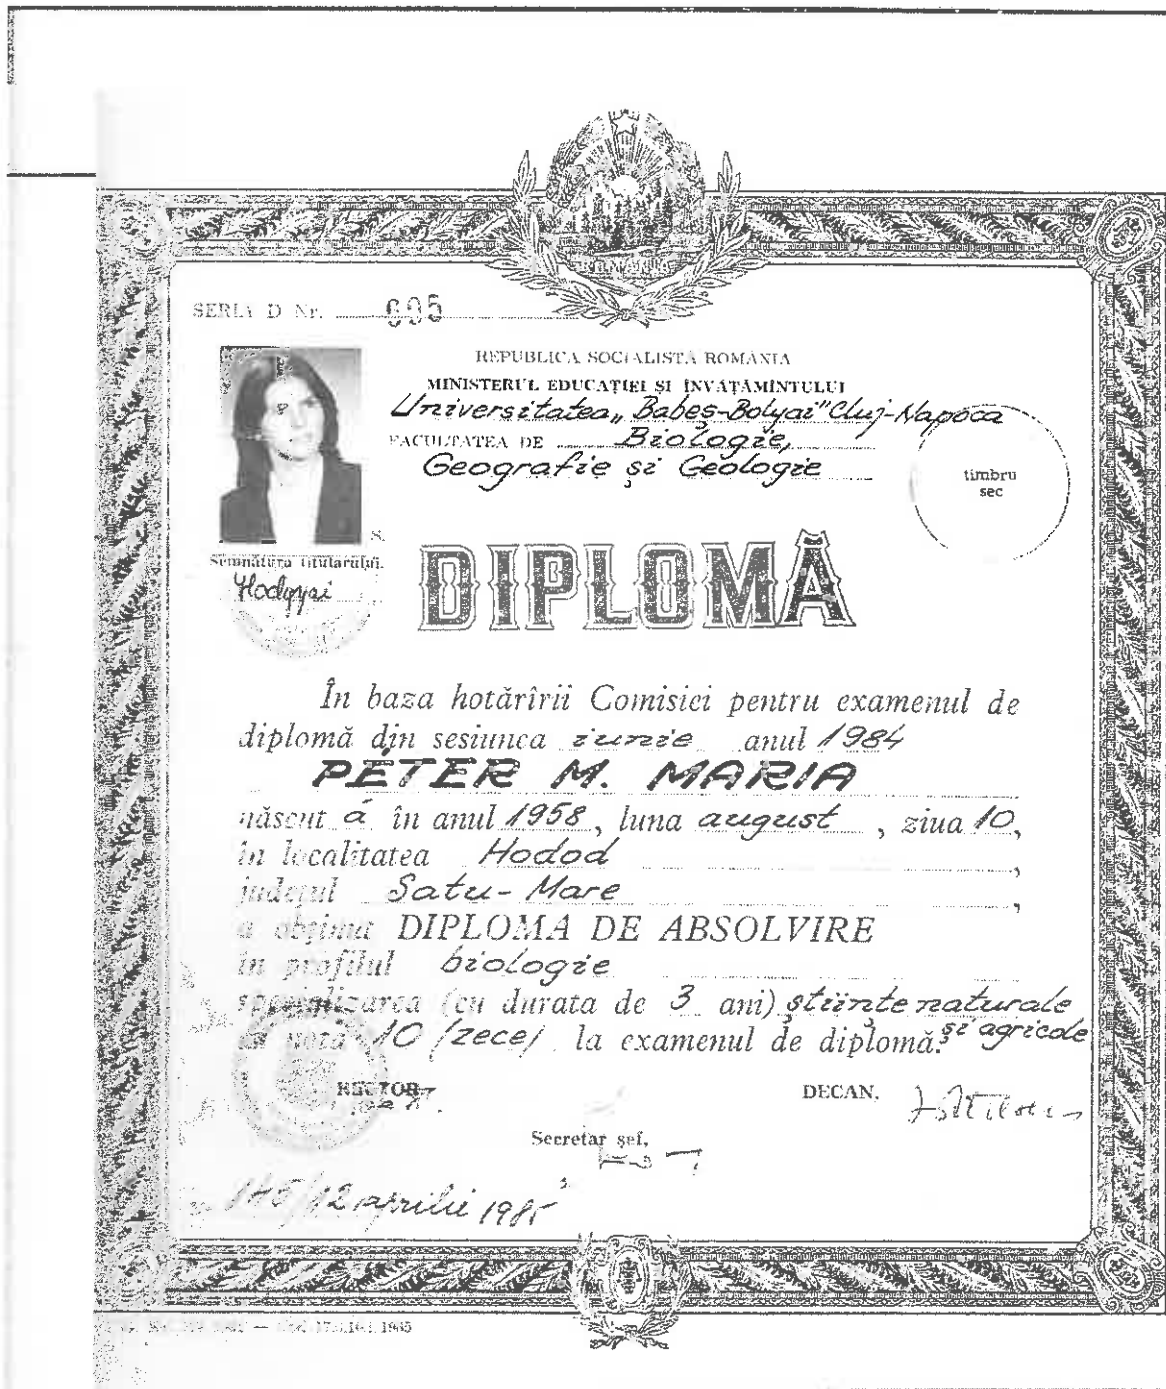 SERIA D Nr. 695
REPUBLICA SOCIALISTĂ ROMÂNIA
MINISTERUL EDUCAȚIEI ȘI ÎNVĂȚĂMÎNTULUI
Universitatea „Babeș-Bolyai" Cluj-Napoca
FACULTATEA DE Biologie,
Geografie și Geologie
timbru
sec
S.
Semnătura titularului,
DIPLOMĂ
În baza hotărîrii Comisiei pentru examenul de
diplomă din sesiunea iunie anul 1984
PÉTER M. MARIA
născut ă în anul 1958, luna august, ziua 10,
în localitatea Hodod,
județul Satu-Mare,
a obținut DIPLOMA DE ABSOLVIRE
în profilul biologie
specializarea (cu durata de 3 ani) științe naturale
și agricole
cu nota 10 /zece/ la examenul de diplomă.
RECTOR,
DECAN,
Secretar șef,
12 aprilie 1985